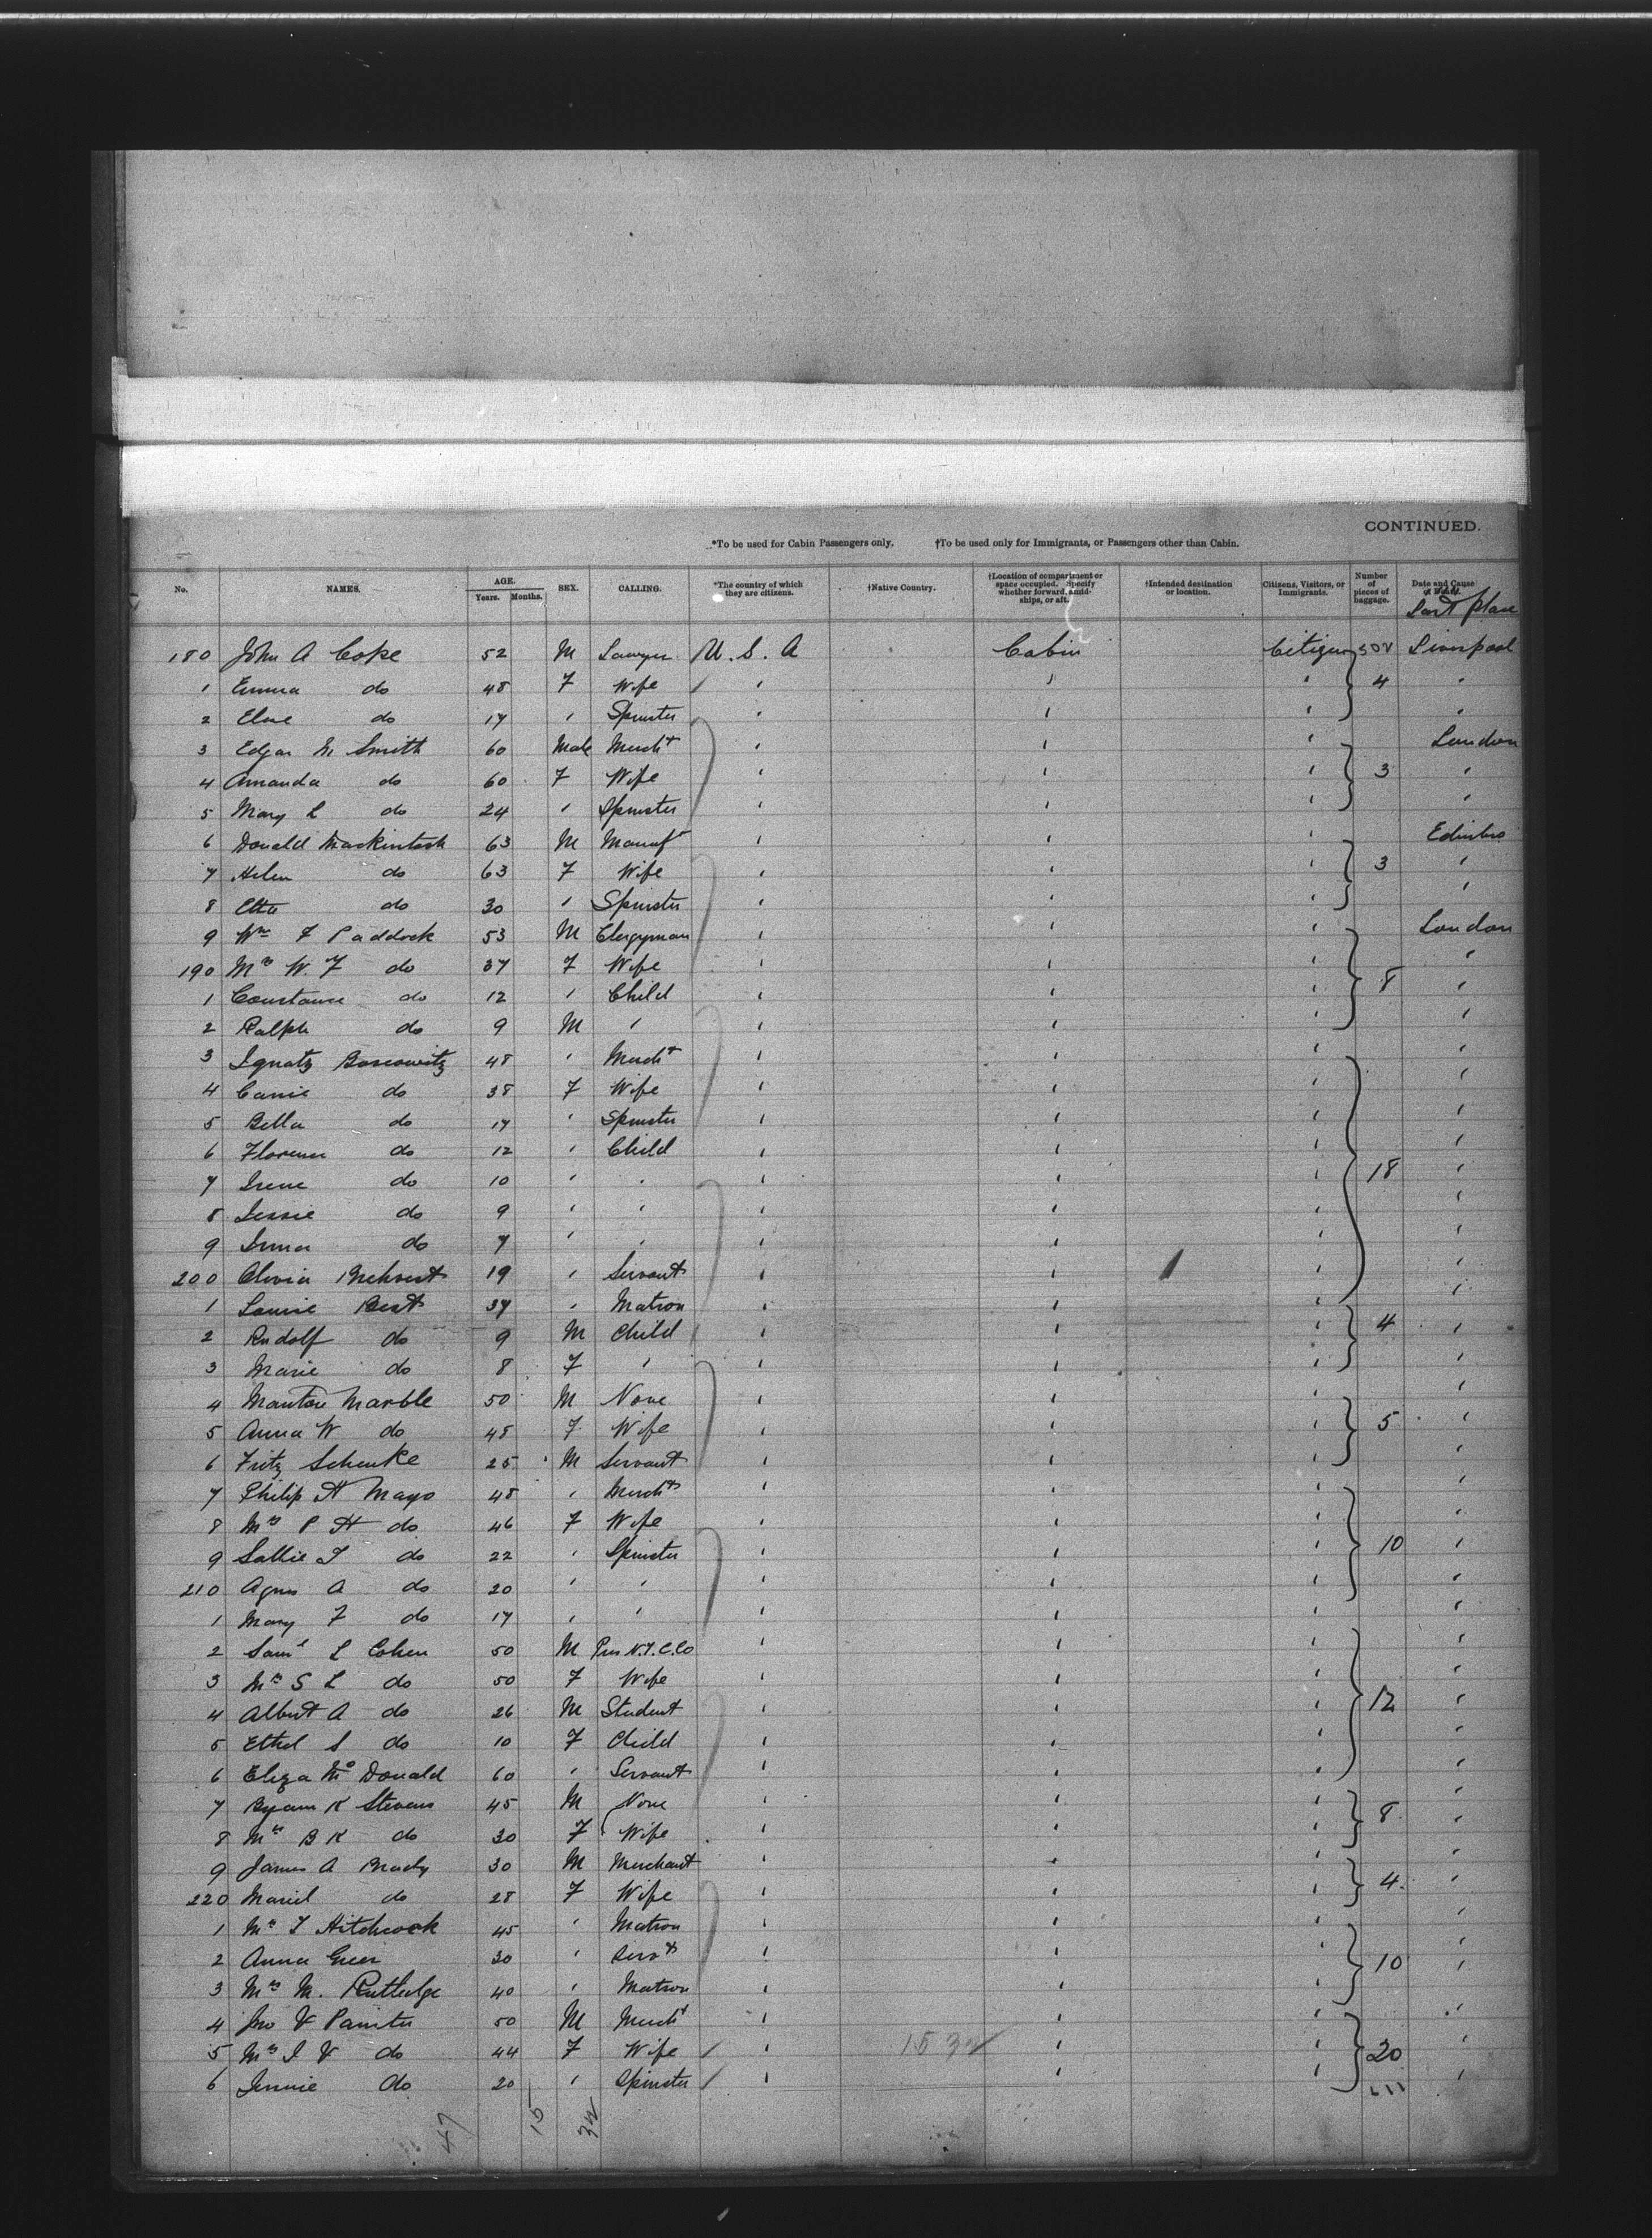 CONTINUED.
*To be used for Cabin Passengers only. †To be used only for Immigrants, or Passengers other than Cabin.
No. NAMES. AGE. Years. Months. SEX. CALLING. *The country of which they are citizens. †Native Country. †Location of compartment or space occupied. Specify whether forward, amidships, or aft. †Intended destination or location. Citizens, Visitors, or Immigrants. Number of pieces of baggage. Date and Cause
Last place
180 John A Cope 52 M Lawyer U.S.A Cabin Citizen Liverpool
1 Emma do 48 F Wife " " " 4 "
2 do 17 " Spinster " " " "
3 Edgar M Smith 60 Male Mercht " " " London
4 Amanda do 60 F Wife " " " 3 "
5 Mary L do 24 " Spinster " " " "
6 Donald Mackintosh 63 M Manufr " " " Edinbro
7 Helen do 63 F Wife " " " 3 "
8 Etta do 30 " Spinster " " " "
9 Wm F Paddock 53 M Clergyman " " " London
190 Mrs W. F do 37 F Wife " " " "
1 Constance do 12 " Child " " " 8 "
2 Ralph do 9 M " " " " "
3 Ignatz Boscowitz 48 " Mercht " " " "
4 Carrie do 38 F Wife " " " "
5 Bella do 17 " Spinster " " " "
6 Florence do 12 " Child " " " "
7 Irene do 10 " " " " " 18 "
8 Jessie do 9 " " " " " "
9 Irma do 7 " " " " " "
200 Olivia 19 " Servant " " " "
1 Louise Best 37 " Matron " " " "
2 Rudolf do 9 M Child " " " 4 "
3 Marie do 8 F " " " " "
4 Manton Marble 50 M None " " " "
5 Anna W do 48 F Wife " " " 5 "
6 Fritz Schenke 25 M Servant " " " "
7 Philip H Mayo 48 " Mercht " " " "
8 Mrs P H do 46 F Wife " " " "
9 Sallie T do 22 " Spinster " " " 10 "
210 Agnes A do 20 " " " " " "
1 Mary F do 17 " " " " " "
2 Saml L Cohen 50 M Pres N.Y.C.Co " " " "
3 Mrs S L do 50 F Wife " " " "
4 Albert A do 26 M Student " " " 12 "
5 Ethel S do 10 F Child " " " "
6 Eliza McDonald 60 " Servant " " " "
7 Byam K Stevens 45 M None " " " "
8 Mrs B K do 30 F Wife " " " 8 "
9 James A Brady 30 M Merchant " " " "
220 Mariel do 28 F Wife " " " 4 "
1 Mrs T Hitchcock 45 " Matron " " "
2 Anna Greer 30 " Servt " " " 10 "
3 Mrs M. Rutledge 40 " Matron " " "
4 Jno V Painter 50 M Mercht " " " "
5 Mrs J V do 44 F Wife " 15 32 " " 20 "
6 Jennie do 20 " Spinster " " " "
47 15 32